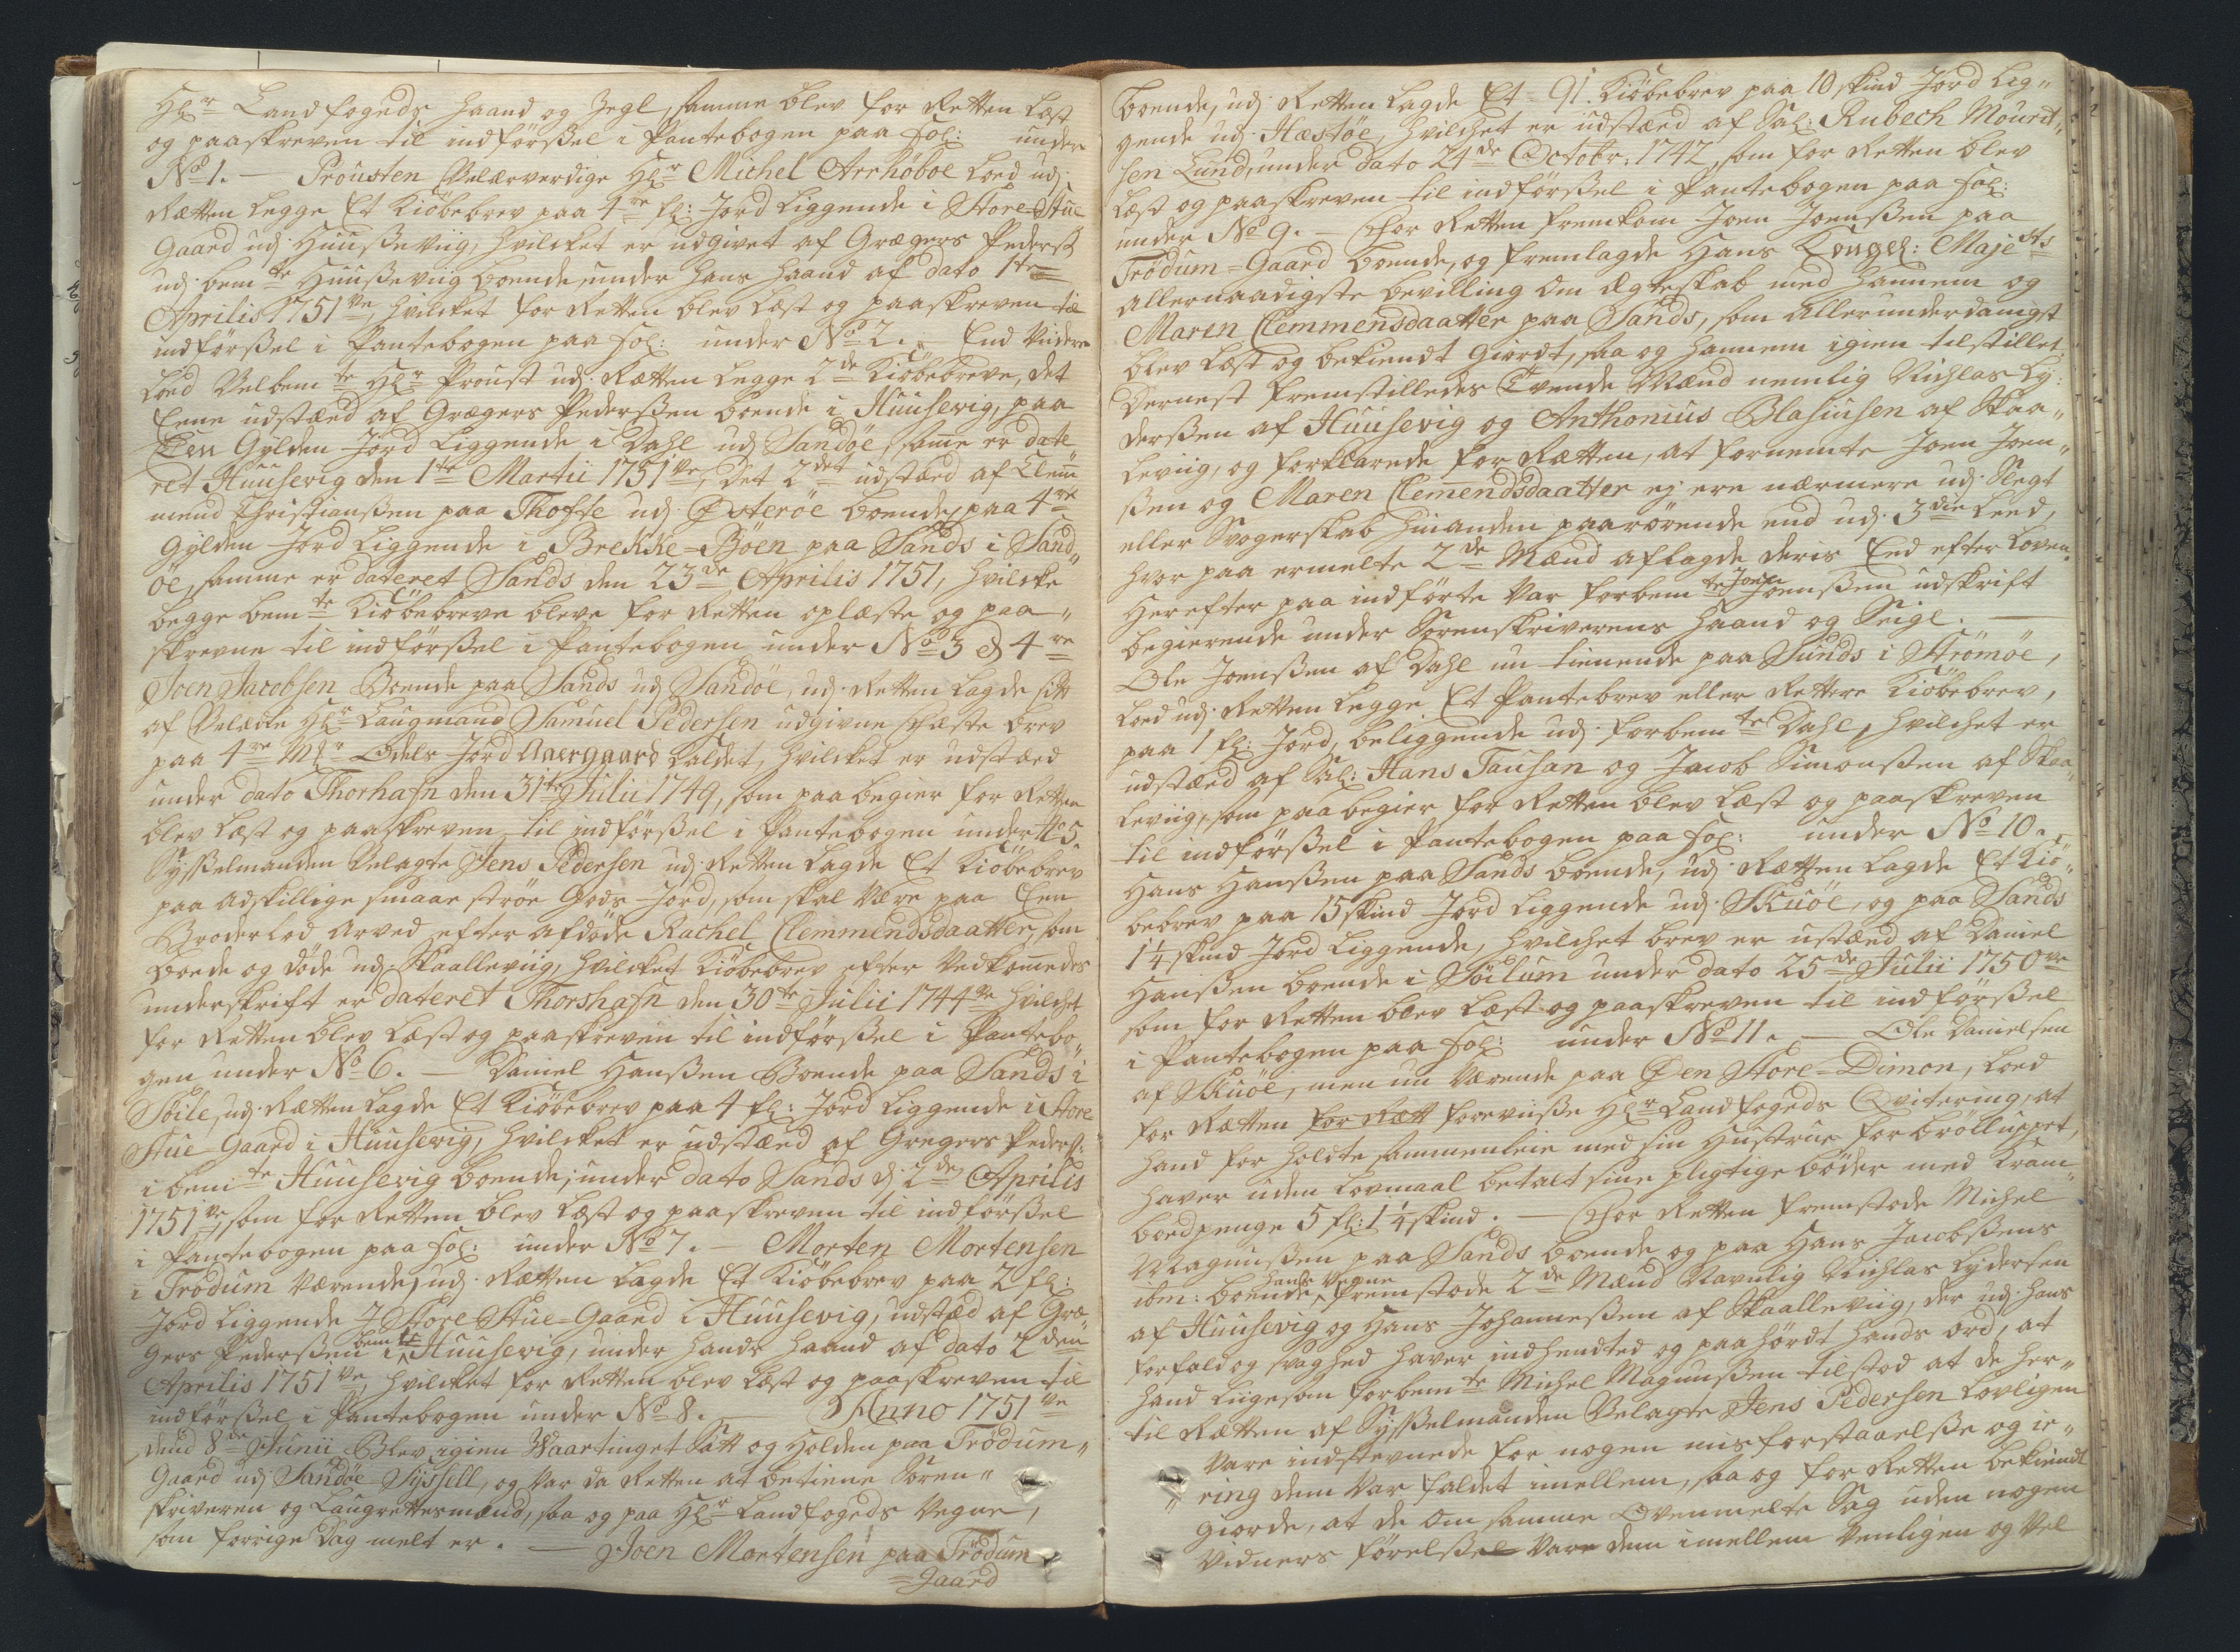 Hl:r Landfogeds haand og Segl, samme blev for Retten læst
og paaskreven til indförßel i Pantebogen paa fol: under
No 1. — Prousten Velærværdige Hl:r Michel Arrhöboe Loed udj
Rætten legge Et Kiöbebrev paa 4re fl: Jord Liggende i Store Stue
Gaard udj Huußeviig, hvilcket er udgivet af Grægers Pederß
udj bemte Huußeviig boende under hans haand af dato 1te
Aprilis 1751ve, hvilcket for Retten blev Læst og paaskreven til
indförßel i Pantebogen paa fol: under No 2. End Videre
Loed Velbemte Hl:r Proust udj Rætten Legge 2de Kiöbebreve, det
Eene udstæd af Grægers Pederßen boende i Huusevig, paa
Een Gylden Jord Liggende i Dahl udj Sandöe, same er date„
ret Huusevig den 1te Martii 1751ve, det 2det udstæd af Clem̅
mend Christianßen paa Thofte udj Österöe boende, paa 4re
Gylden Jord Liggende i Brekke-Böen paa Sands i Sand„
öe, samme er dateret Sands den 23de Aprilis 1751, hvilcke
begge bemte Kiöbebreve bleve for Retten oplæste og paa„
skrevne til indförßel i Pantebogen under No 3 & 4re
Joen Jacobsen Boende paa Sands udj Sandöe, udj Retten Lagde sitt
af Velædle Hl:r Laugmand Samuel Pedersen udgivne Fæste brev
paa 4re Mr Odels Jord Aaergaard kaldet, hvilcket er udstæd
under dato Thorhafn den 31te Julii 1749, som paa begier for Retten
blev Læst og paaskreven til indförßel i Pantebogen under No 5.
Sysßelmanden Velagte Jens Pedersen udj Retten Lagde Et Kiöbebrev
paa adskillige smaae ströe Gods-Jord, som skal være paa Een
Broderlod arved efter afdöde Rachel Clemmendsdaatter, som
boede og döde udj Skaalleviig, hvilcket Kiöbebrev efter Vedkom̅edes
underskrift er dateret Thorshafn den 30te Julii 1744re hvilchet
for Retten blev Læst og paaskreven til indförßel i Pantebo„
gen under No 6. — Daniel Hanßen Boende paa Sands i
Söile, udj Rætten Lagde Et Kiöbebrev paa 4 fl: Jord Liggende i Store
Stue-Gaard i Huusevig, hvilcket er udstæd af Gregers Pederß:
i bemte Huusevig boende, under dato Sands d: 2de Aprilis
1751ve, som for Retten blev Læst og paaskreven til indförßel
i Pantebogen paa fol: under No 7. — Morten Mortensen
i Trödum Værende, udj Rætten Lagde Et Kiöbebrev paa 2 fl:
Jord Liggende J Store Stue-Gaard i Huusevig, udstæd af Græ„
gers Pederßen i bemte Huusevig, under hands haand af dato 2den
Aprilis 1751ve, hvilcket for Retten blev Læst og paaskreven til
indförßel i Pantebogen under No 8. — Anno 1751ve
dend 8de Junii Blev igien Waartinget Satt og Holden paa Trödum„
Gaard udj Sandöe Syssell, og Var da Retten at betiene Soren„
skriveren og Laugrettesmænd, saa og paa Hl:r Landfogeds Vegne,
som forrige Dag melt er. — Joen Mortensen paa Trödum
=Gaard
boende, udj Retten Lagde Et Kiöbebrev paa 10 skind Jord Lig„
91.
gende udj Hæstöe, hvilchet er udstæd af Sal: Rubech Mourit„
sen Lund, under dato 24de Octobr: 1742, som for Retten blev
Læst og paaskreven til indförßel i Pantebogen paa fol:
under No 9. — For Retten fremkom Joen Joenßen paa
Trödum=Gaard boende, og fremlagde Hans Kongel: Majests
allernaadigste bevilling om Ægteskab med hannem og
Maren Clemmensdaatter paa Sands, som allerunderdanigst
blev Læst og bekiendt Giordt, saa og hannem igien tilstillet.
Dernest fremstilledes Tvende Mænd nemlig Nichlas Ly„
derßen af Huusevig og Anthonius Blasiusen af Skaa„
leviig, og forklarede for Rætten, at fornemte Joen Joen„
ßen og Maren Clemendsdaatter ej ere nærmere udj Slegt
eller Svogerskab hinanden paarörende end udj 3die Leed,
hvor paa ermelte 2de Mænd aflagde deris Eed efter Loven.
Herefter paa indförte Var forbemte Joen Joenßen udskrift
begierende under Sorenskriverens Haand og Seigl. —
Ole Joenßen af Dahl nu tienende paa Sunds i Strömöe,
Loed udj Retten Legge Et Pantebrev eller Rettere Kiöbebrev,
paa 1 fl: Jord, beliggende udj forbemte Dahl, hvilchet er
udstæd af Sal: Hans Tausan og Jacob Simonßen af Skaa„
leviig, som paa begier for Retten blev Læst og paaskreven
til indförßel i Pantebogen paa fol: under No 10.
Hans Hanßen paa Sands boende, udj Rætten Lagde Et Kiö„
bebrev paa 15 skind Jord Liggende udj Skuöe, og paa Sands
1¼ skind Jord Liggende, hvilchet brev er ustæd af Daniel
Hanßen boende i Söilum under dato 25de Julii 1750ve
som for Retten blev Læst og paaskreven til indförßel
i Pantebogen paa fol: under No 11. — Ole Danielsen
af Skuöe, men nu Værende paa Den Store=Dimon, Loed
for Rætten for Rætt foreviiße Hl:r Landfogeds Qvitering, at
hand for holdte sammenleie med sin Hustrue for brölluppet,
haver uden Lovmaal betalt sine pligtige böder med Kram„
boedpenge 5 fl: 1¼ skind. — For Retten fremstode Michel
Magnußen paa Sands boende og paa Hans Jacobßens
ibm: boende hands Vegne fremstode 2de Mænd Navnlig Nichlas Lydersen
af Huusevig og Hans Johanneßen af Skaalleviig, der udj hans
forfald og svaghed haver indhendted og paahördt hands ord, at
hand Liigesom forbemte Michel Magnußen tilstod at de her„
til Rætten af Sysßelmanden Velagte Jens Pedersen Lovligen
Vare indstevnede for nogen misforstaaelße og ir„
„ring dem Var faldet imellem, saa og for Retten bekiendt
Giorde, at de om samme Ovenmelte Sag uden nogen
Vidners förelße Vare dem imellem Venligen og Vel